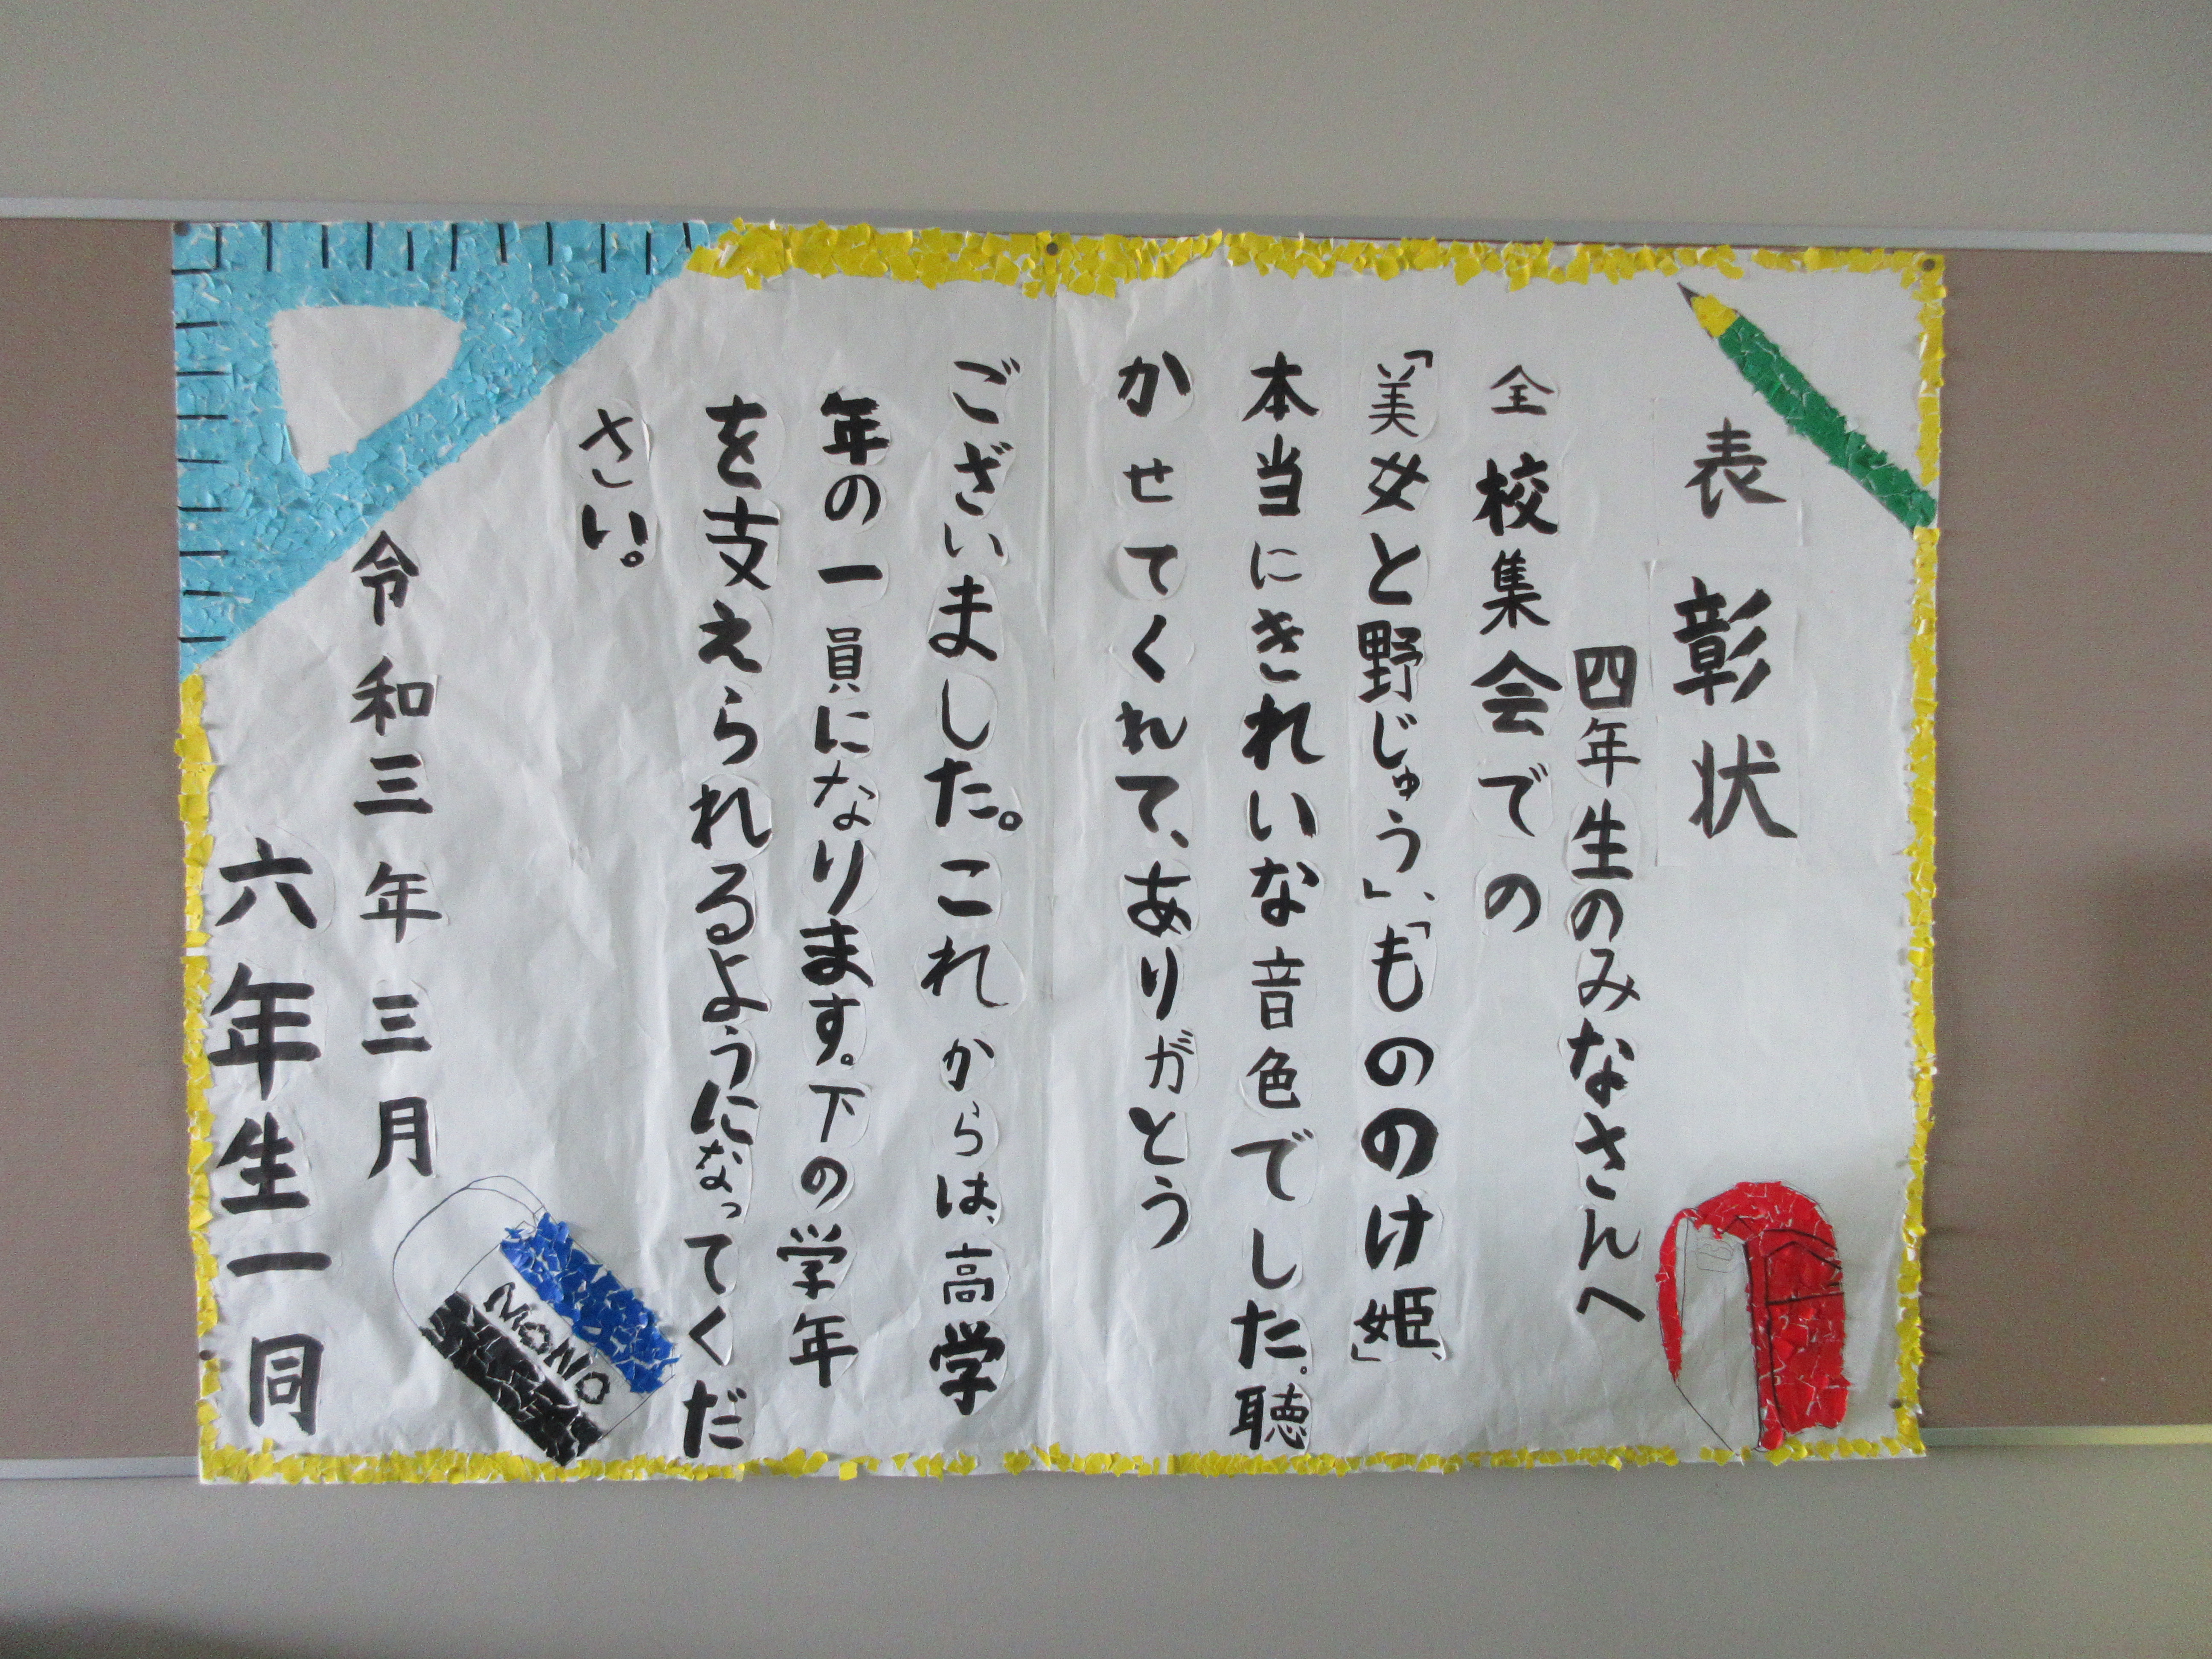 表彰状
四年生のみなさんへ
全校集会での
「美女と野じゅう」、「もののけ姫」、
本当にきれいな音色でした。聴
かせてくれて、ありガとう
ございました。これからは、高学
年の一員になります。下の学年
を支えられるようになってくだ
さい。
令和三年三月
六年生一同
MONO